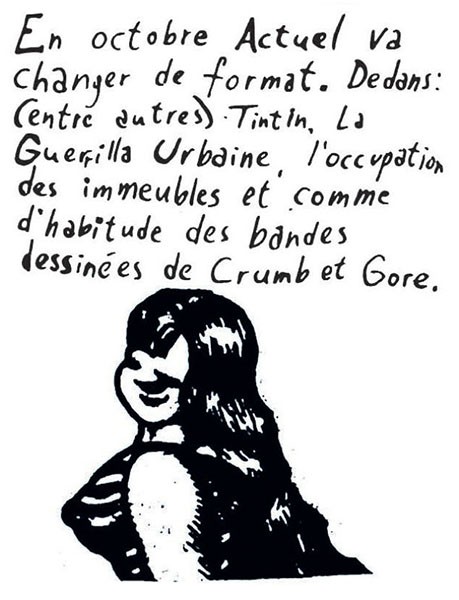 En octobre Actuel va
changer de format. Dedans:
(entre autres) Tintin, La
Guérilla Urbaine, l'occupation
des immeubles et comme
d'habitude des bandes
dessinées de Crumb et Gore.